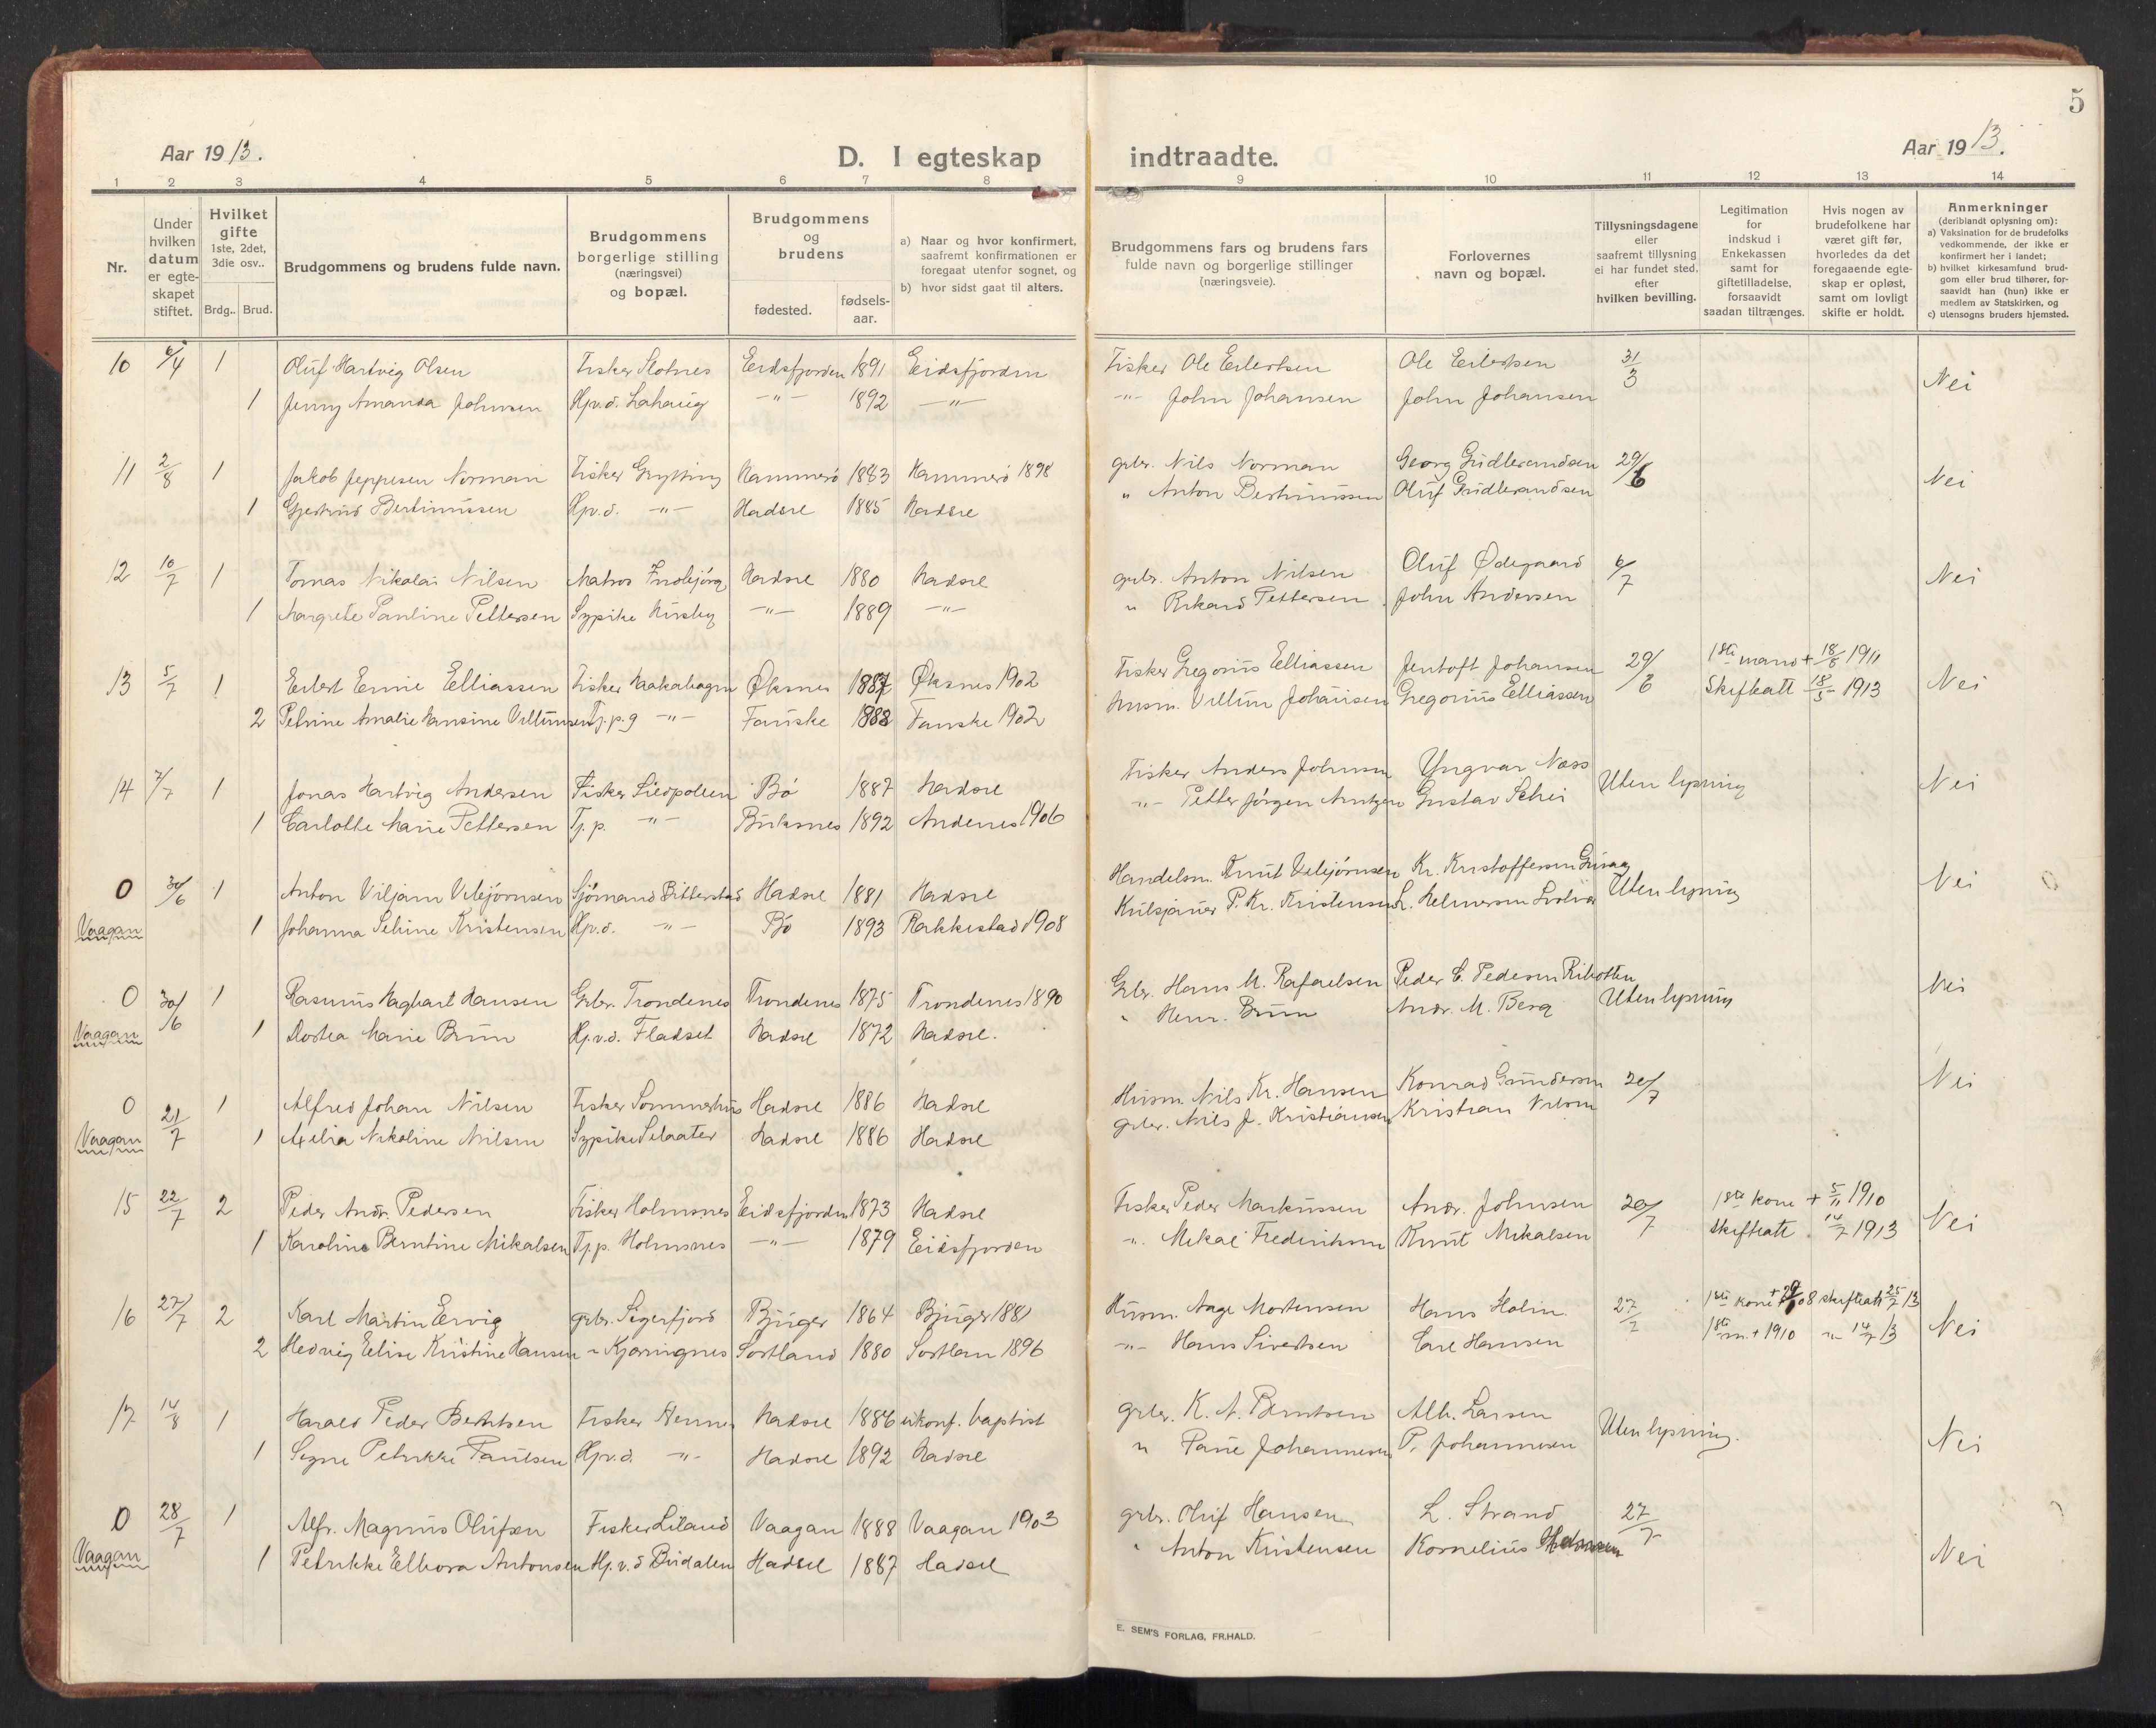 5
Aar 1913.
D. I egteskap
indtraadte.
Aar 1913.
1 2 3 4 5 6 7 8 9 10 11 12 13 14
Nr.
Under hvilken datum er egte-skapet stiftet.
Hvilket gifte 1ste, 2det, 3die osv..
Brdg.. Brud.
Brudgommens og brudens fulde navn.
Brudgommens borgerlige stilling (næringsvei) og bopæl.
Brudgommens og brudens
fødested.
fødsels-aar.
a) Naar og hvor konfirmert, saafremt konfirmationen er foregaat utenfor sognet, og
b) hvor sidst gaat til alters.
Brudgommens fars og brudens fars fulde navn og borgerlige stillinger (næringsveie).
Forlovernes navn og bopæl.
Tillysningsdagene eller saafremt tillysning ei har fundet sted, efter hvilken bevilling.
Legitimation for indskud i Enkekassen samt for giftetilladelse, forsaavidt saadan tiltrænges.
Hvis nogen av brudefolkene har været gift før, hvorledes da det foregaaende egte-skap er opløst, samt om lovligt skifte er holdt.
Anmerkninger (deriblandt oplysning om):
a) Vaksination for de brudefolks vedkommende, der ikke er konfirmert her i landet;
b) hvilket kirkesamfund brud-gom eller brud tilhører, for-saavidt han (hun) ikke er medlem av Statskirken, og
c) utensogns bruders hjemsted.
10 6/4 1 Oluf Hartvig Olsen Fisker Slotnes Eidsfjorden 1891 Eidsfjorden Fisker Ole Eilertsen Ole Eilertsen 31/3 Nei
1 Jenny Amanda Johnsen Hp.v.d. -"- 1892 -"- -"- John Johansen John Johansen
11 2/8 1 Jakob Jeppesen Norman Fisker Grytting Hammerö 1883 Hammerö 1898 grbr. Nils Norman Georg 29/6 Nei
1 Gjertrud Bertinussen Hp.v.d. -"- Hadsel 1885 Hadsel " Anton Bertinussen Oluf
12 10/7 1 Tomas Nikolai Nilsen Matros Hadsel 1880 Hadsel grbr. Anton Nilsen Oluf Ødegaard 6/7 Nei
1 Margrete Pauline Pettersen Sypike -"- 1889 -"- " Rikard Pettersen John Andersen
13 5/7 1 Eilert Enine Elliassen Fisker Øksnes 1887 Øksnes 1902 Fisker Gregorius Elliassen Jentoft Johansen 29/6 1ste mand + 18/8 1911 Nei
2 Petrine Amalie Hansine Villumsen Tj.p.g -"- Fauske 1888 Fauske 1902 Husm. Villum Johansen Gregorius Elliassen Skifteatt 18/5 1913
14 7/7 1 Jonas Hartvig Andersen Fisker Bö 1887 Hadsel Fisker Anders Johnsen Yngvar Næss Uten lysning Nei
1 Carlotte Marie Pettersen Tj.p. -"- Buksnes 1892 Andenes 1906 -"- Petter Jörgen Arntzen Gustav Schei
0 30/6 1 Anton Viljam Vebjörnsen Sjömand Bitterstad Hadsel 1881 Hadsel Handelsm. Knut Vebjörnsen Kr. Kristoffersen Uten lysning Nei
Vaagan 1 Johanna Seline Kristensen Hp.v.d. -"- Bö 1893 Rakkestad 1908 P. Kr. Kristensen L. Helmersen Svolvær
0 30/6 1 Rasmus Hagbart Hansen Grbr. Trondenes Trondenes 1875 Trondenes 1890 Grbr. Hans M. Rafaelsen Peder C. Pedersen Uten lysning Nei
Vaagan 1 Dortea Marie Brun Hp.v.d. Fladset Hadsel 1872 Hadsel. " Henr. Brun Andr. M. Berg
0 21/7 1 Alfred Johan Nilsen Fisker Sommerhus Hadsel 1886 Hadsel Husm. Nils Kr. Hansen Konrad Gundersen 20/7 Nei
Vaagan 1 Nikoline Nilsen Sypike Hadsel 1886 Hadsel grbr. Nils J. Kristiansen Kristian Nilsen
15 22/7 2 Peder Andr. Pedersen Fisker Holmsnes Eidsfjorden 1873 Hadsel Fisker Peder Markussen Andr. Johnsen 20/7 1ste kone + 5/11 1910 Nei
1 Karoline Berntine Mikalsen Tj.p. Holmsnes -"- 1879 Eidsfjorden -"- Mikal Fredriksen Knut Mikalsen Skifteatt. 14/7 1913
16 27/7 2 Karl Martin Ervig grbr. Sigerfjord Bjuger 1864 Bjuger 1881 Husm. Aage Mortensen Hans Holm 27/7 1ste kone + 08 skifteatt 25/7 13 Nei
2 Hedvig Elise Kristine Hansen " Kjøringnes Sortland 1880 Sortlan 1896 -"- Hans Sivertsen Carl Hansen 1ste m. + 1910 -"- 14/7 13
17 14/8 1 Harald Peder Berntsen Fisker Hennes Hadsel 1886 ukonf. baptist grbr. K. A. Berntsen Alb. Larsen Uten lysning. Nei
1 Signe Petrikke Paulsen Hp.v.d. -"- Hadsel 1892 Hadsel " Paul Johannesen P. Johannesen
0 28/7 1 Alfr. Magnus Olufsen Fisker Liland Vaagan 1888 Vaagan 1903 grbr. Oluf Hansen L. Strand 27/7
Vaagan 1 Petrikke Ellvora Antonsen Hp.v.d Budalen Hadsel 1887 Hadsel " Anton Kristensen Kornelius Nei
E. SEM'S FORLAG, FR.HALD.